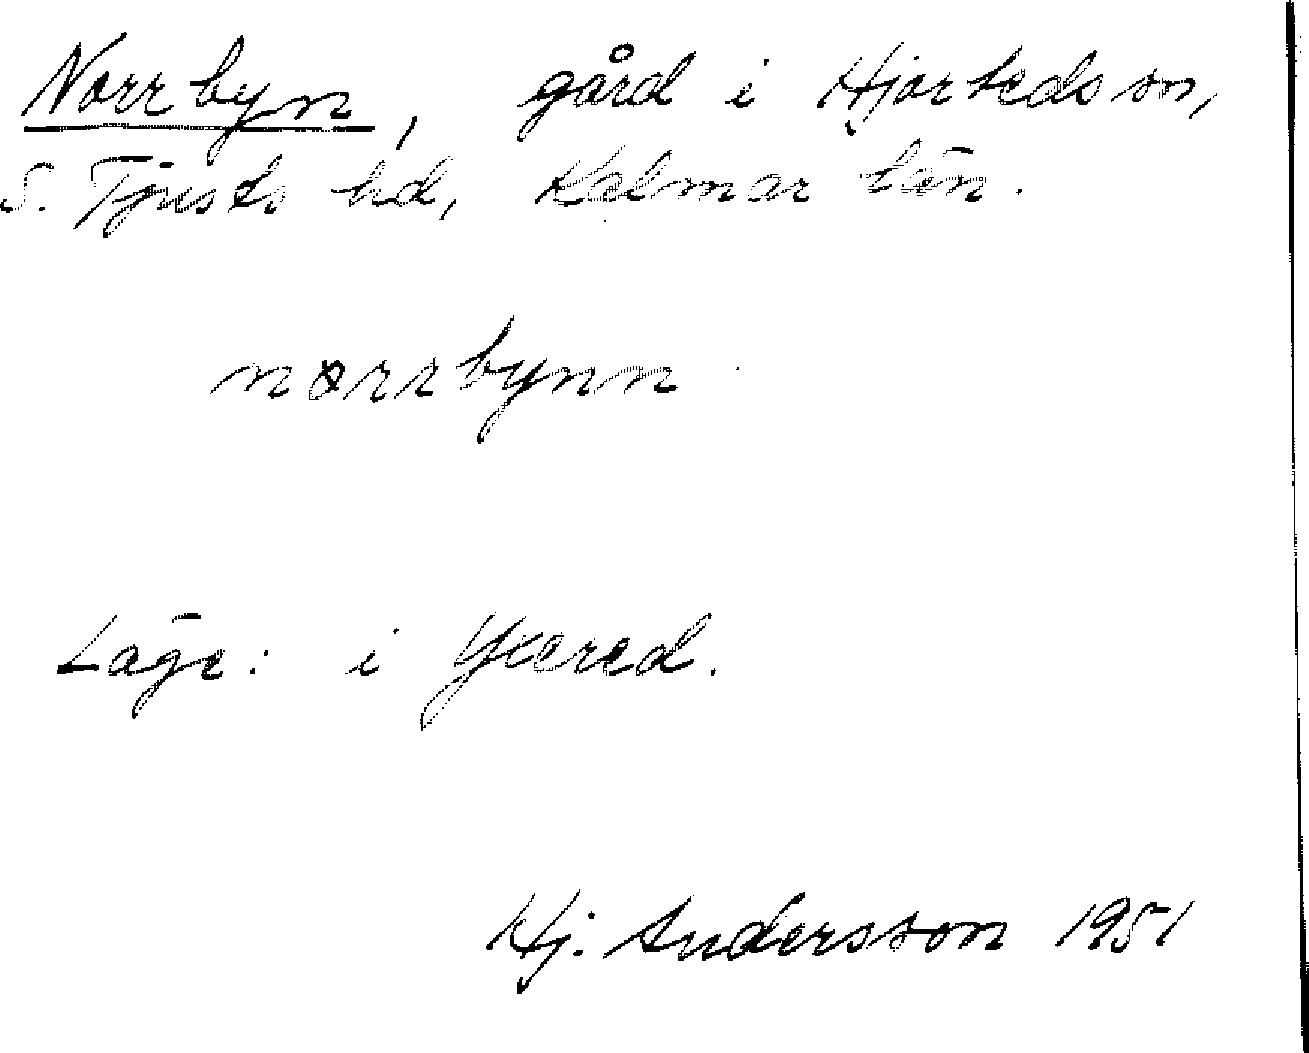 Norrbyn, gård i Hjorteds sn,
S. Tjusts hd, Kalmar län.
nørrbynn
Läge: i Yxered.
Hj. Andersson 1951